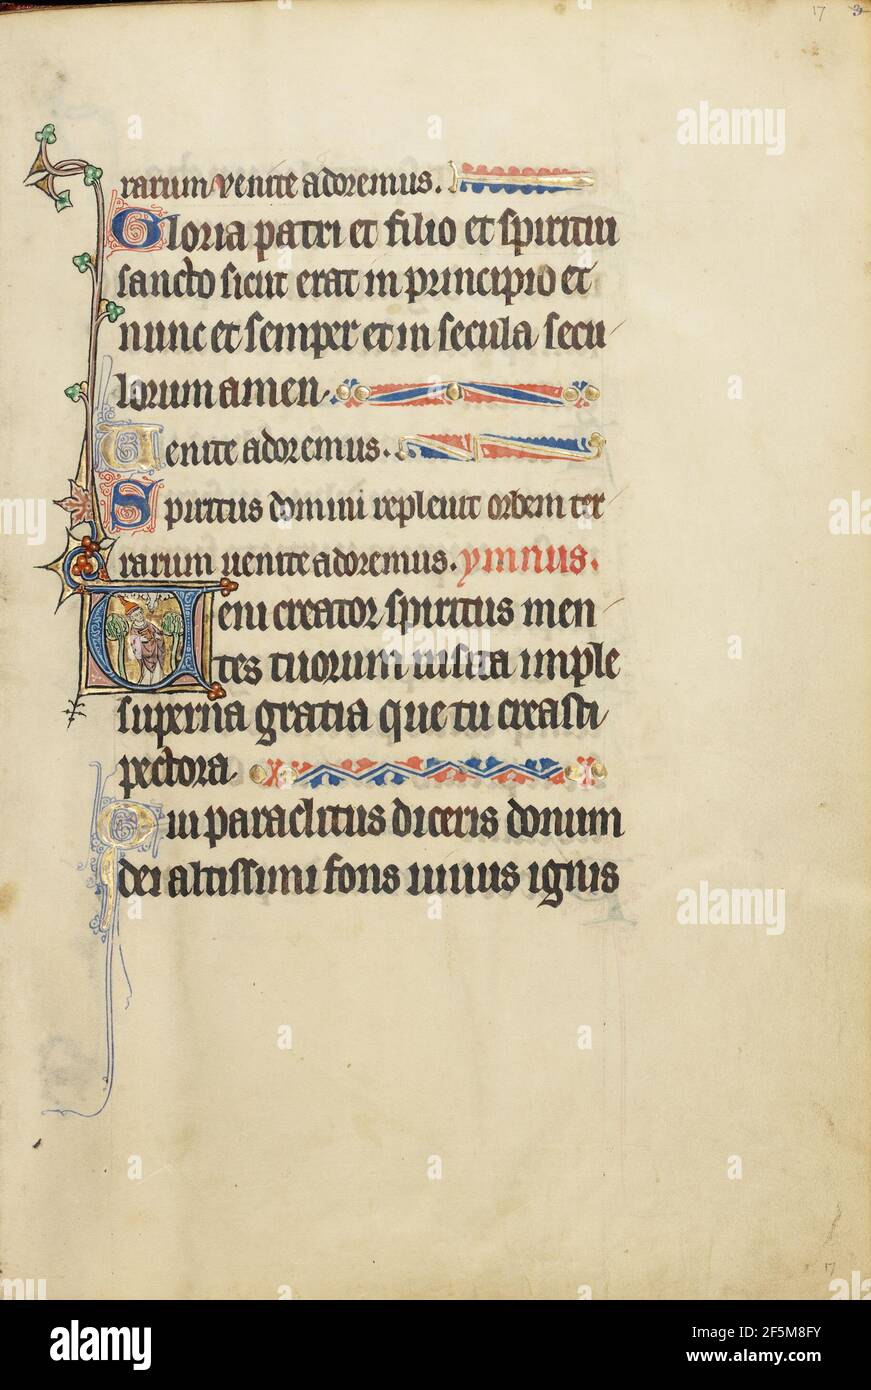 17 3
rarum venite adoremus.
Gloria patri et filio et spiritui
sancto sicut erat in principio et
nunc et semper et in secula secu
lorum amen.
Venite adoremus.
Spiritus domini repleuit orbem ter
rarum uenite adoremus. ymnus.
Ueni creator spiritus men
tes tuorum uisita imple
superna gratia que tu creasti
pectora.
Qui paraclitus diceris donum
dei altissimi fons uiuus ignis
17
alamy
alamy
alamy
Image ID: 2F5M8FY
www.alamy.com